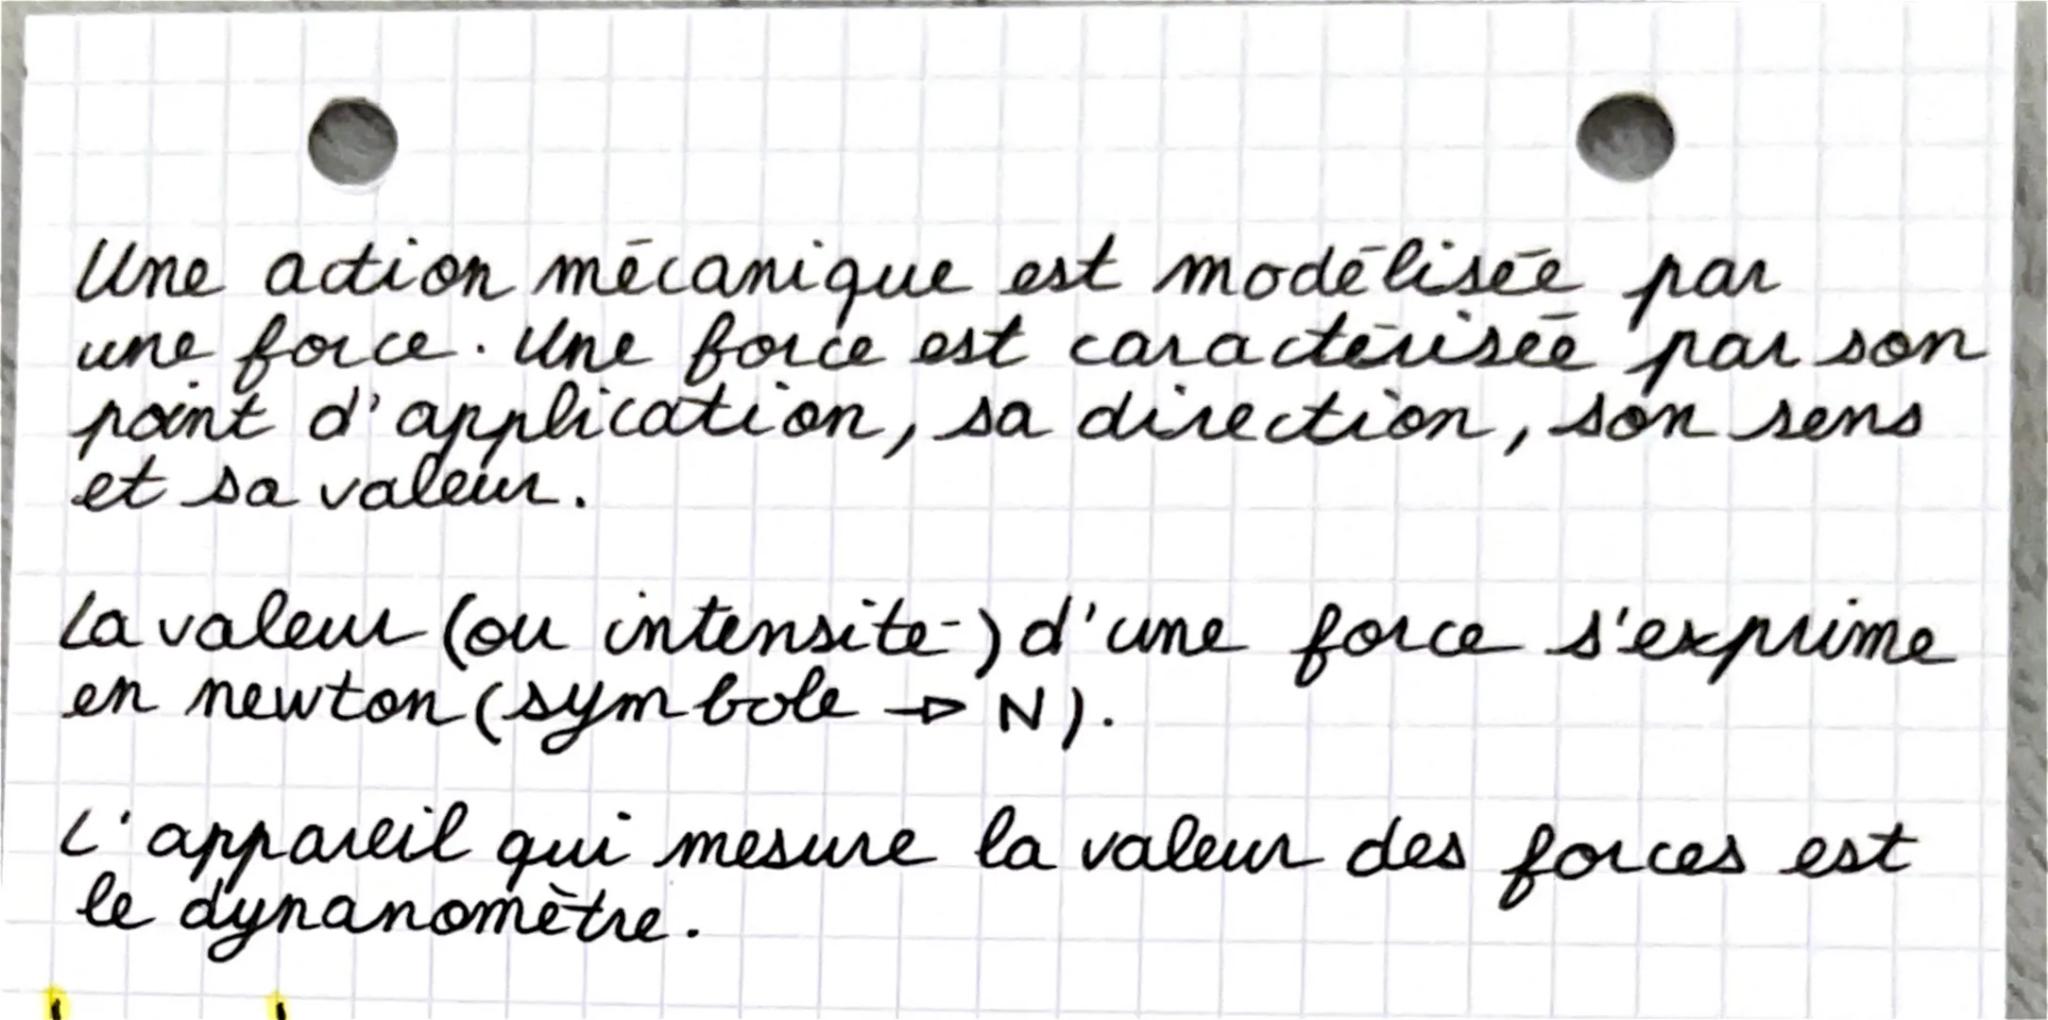 Une action mécanique est modélisée par
une force. Une force est caractérisée par son
point d'application, sa direction, son sens
et sa valeur.
La valeur (ou intensité) d'une force s'exprime
en newton (symbole → N).
L'appareil qui mesure la valeur des forces est
le dynanomètre.